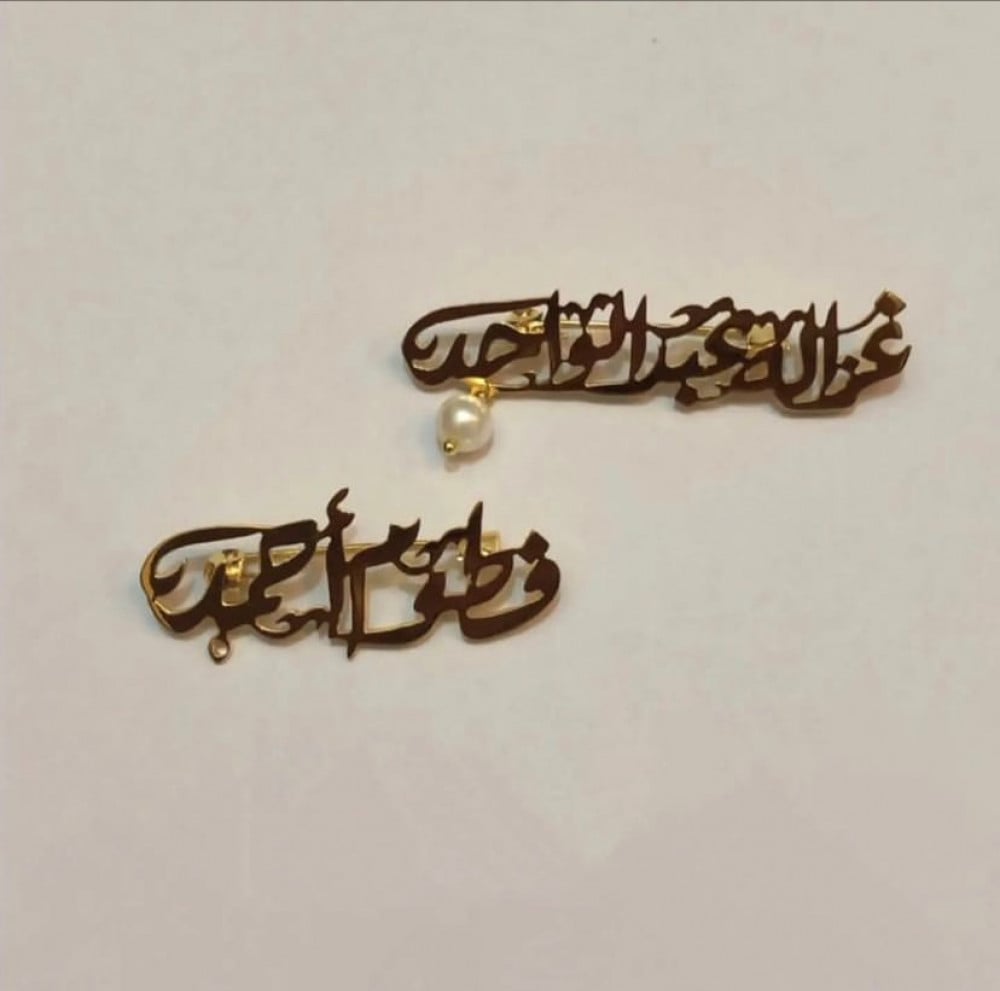 غزالة عبدالواحد
فطوم أحمد